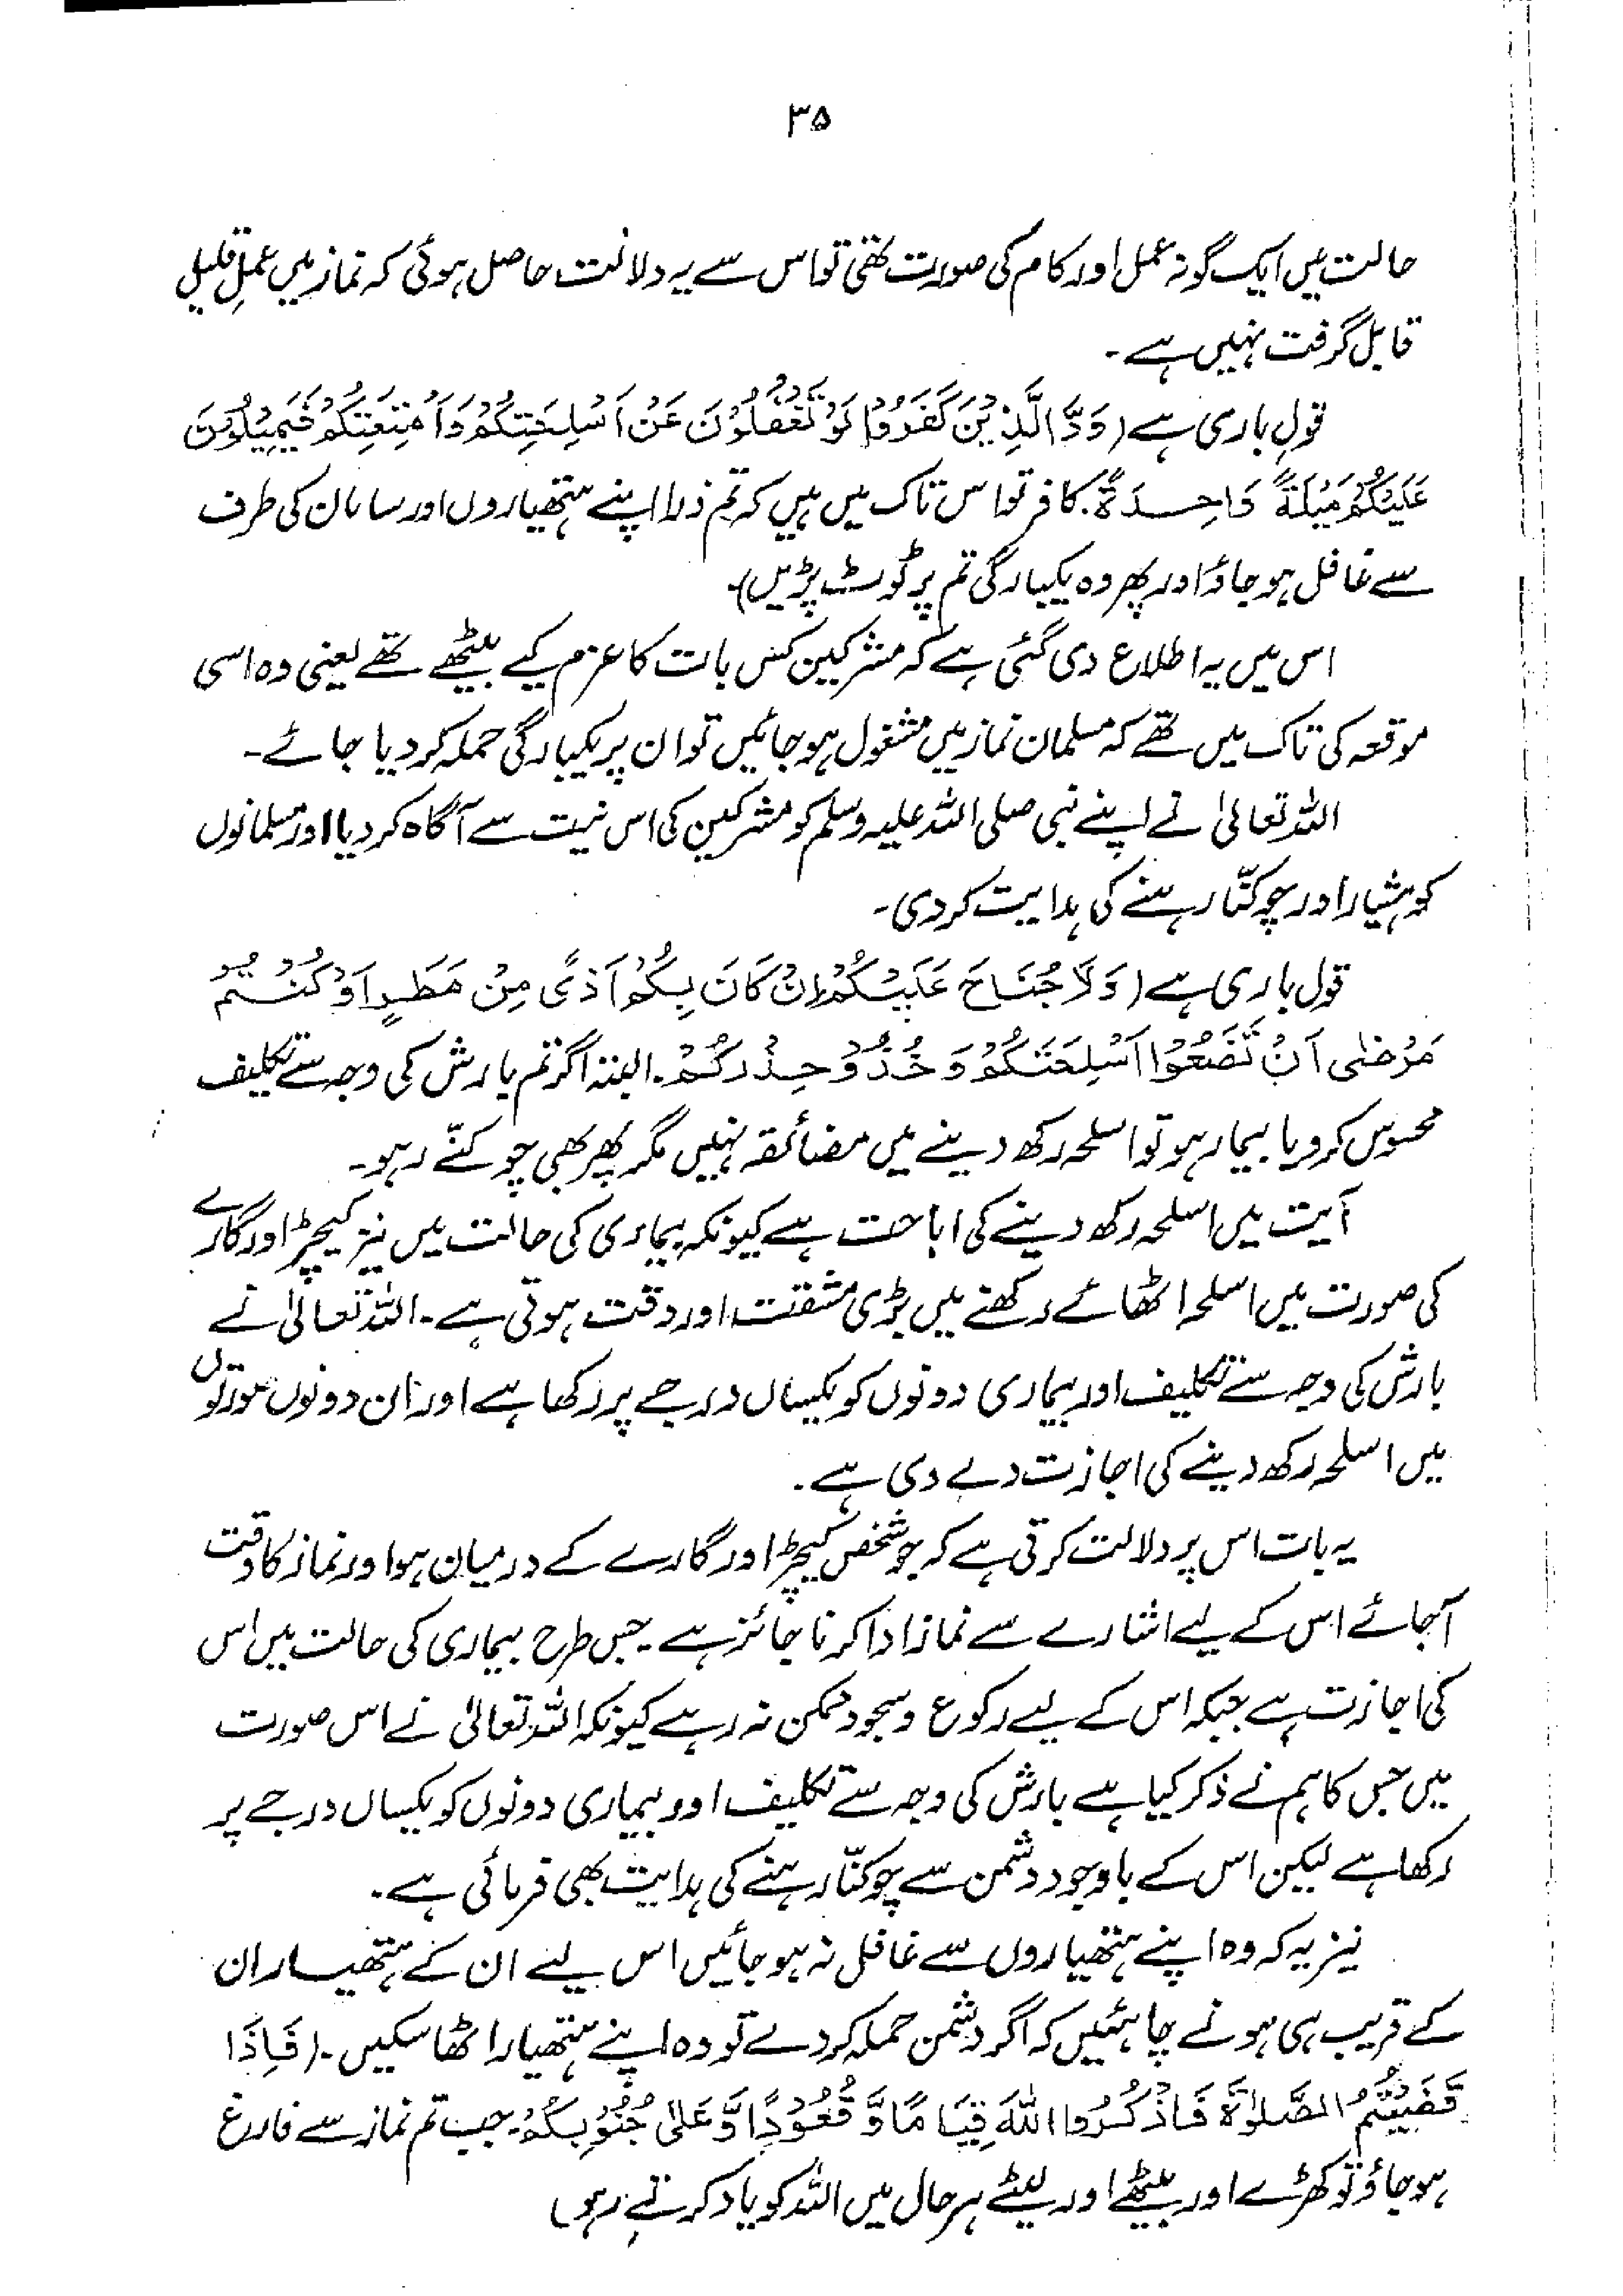 ۳۵
حالت میں ایک گونہ عمل اور کام کی صورت تھی تو اس سے یہ دلالت حاصل ہوئی کہ نماز میں عملِ قلیل
قابل گرفت نہیں ہے۔
قولِ باری ہے (وَدَّ الَّذِيْنَ كَفَرُوْا لَوْ تَغْفُلُوْنَ عَنْ اَسْلِحَتِكُمْ وَاَمْتِعَتِكُمْ فَيَمِيْلُوْنَ
عَلَيْكُمْ مَيْلَةً وَاحِدَةً۔ کافر تو اس تاک میں ہیں کہ تم ذرا اپنے ہتھیاروں اور سامان کی طرف
سے غافل ہو جاؤ اور پھر وہ یکبارگی تم پر ٹوٹ پڑیں)۔
اس میں یہ اطلاع دی گئی ہے کہ مشرکین کس بات کا عزم کیے بیٹھے تھے یعنی وہ اسی
موقعہ کی تاک میں تھے کہ مسلمان نماز میں مشغول ہو جائیں تو ان پر یکبارگی حملہ کر دیا جائے۔
اللہ تعالیٰ نے اپنے نبی صلی اللہ علیہ وسلم کو مشرکین کی اس نیت سے آگاہ کر دیا اور مسلمانوں
کو ہشیار اور چوکنّا رہنے کی ہدایت کر دی۔
قول باری ہے (وَلَا جُنَاحَ عَلَيْكُمْ اِنْ كَانَ بِكُمْ اَذًى مِنْ مَطَرٍ اَوْ كُنْتُمْ
مَرْضٰى اَنْ تَضَعُوْا اَسْلِحَتَكُمْ وَخُذُوْ حِذْرَكُمْ۔ البتہ اگر تم بارش کی وجہ سے تکلیف
محسوس کرو یا بیمار ہو تو اسلحہ رکھ دینے میں مضائقہ نہیں مگر پھر بھی چوکنّے رہو۔
آیت میں اسلحہ رکھ دینے کی اباحت ہے کیونکہ بیماری کی حالت میں نیز کیچڑ اور گارے
کی صورت میں اسلحہ اٹھائے رکھنے میں بڑی مشقت اور دقت ہوتی ہے۔ اللہ تعالیٰ نے
بارش کی وجہ سے تکلیف اور بیماری دونوں کو یکساں درجے پر رکھا ہے اور ان دونوں صورتوں
میں اسلحہ رکھ دینے کی اجازت دے دی ہے۔
یہ بات اس پر دلالت کرتی ہے کہ جو شخص کیچڑ اور گارے کے درمیان ہو اور نماز کا وقت
آ جائے اس کے لیے اشارے سے نماز ادا کرنا جائز ہے۔ جس طرح بیماری کی حالت میں اس
کی اجازت ہے جبکہ اس کے لیے رکوع و سجود ممکن نہ رہے کیونکہ اللہ تعالیٰ نے اس صورت
میں جس کا ہم نے ذکر کیا ہے بارش کی وجہ سے تکلیف اور بیماری دونوں کو یکساں درجے پر
رکھا ہے لیکن اس کے باوجود دشمن سے چوکنّا رہنے کی ہدایت بھی فرمائی ہے۔
نیز یہ کہ وہ اپنے ہتھیاروں سے غافل نہ ہو جائیں اس لیے ان کے ہتھیار ان
کے قریب ہی ہونے چاہئیں کہ اگر دشمن حملہ کر دے تو وہ اپنے ہتھیار اٹھا سکیں۔ (فَاِذَا
قَضَيْتُمُ الصَّلٰوةَ فَاذْكُرُوا اللّٰهَ قِيَامًا وَّقُعُوْدًا وَّعَلٰى جُنُوْبِكُمْ۔ جب تم نماز سے فارغ
ہو جاؤ تو کھڑے اور بیٹھے اور لیٹے ہر حال میں اللہ کو یاد کرتے رہو)